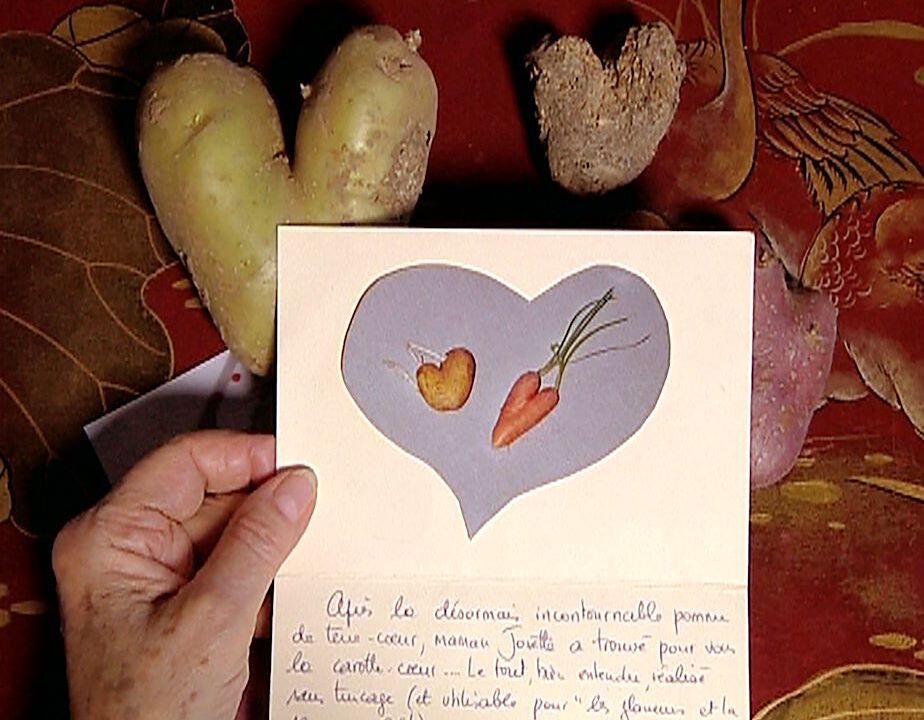 Après la désormais incontournable pomme
de terre-cœur, maman Josette a trouvé pour vous
la carotte-cœur .... Le tout, bien entendu, réalisé
sans trucage (et utilisable pour "les glaneurs et la